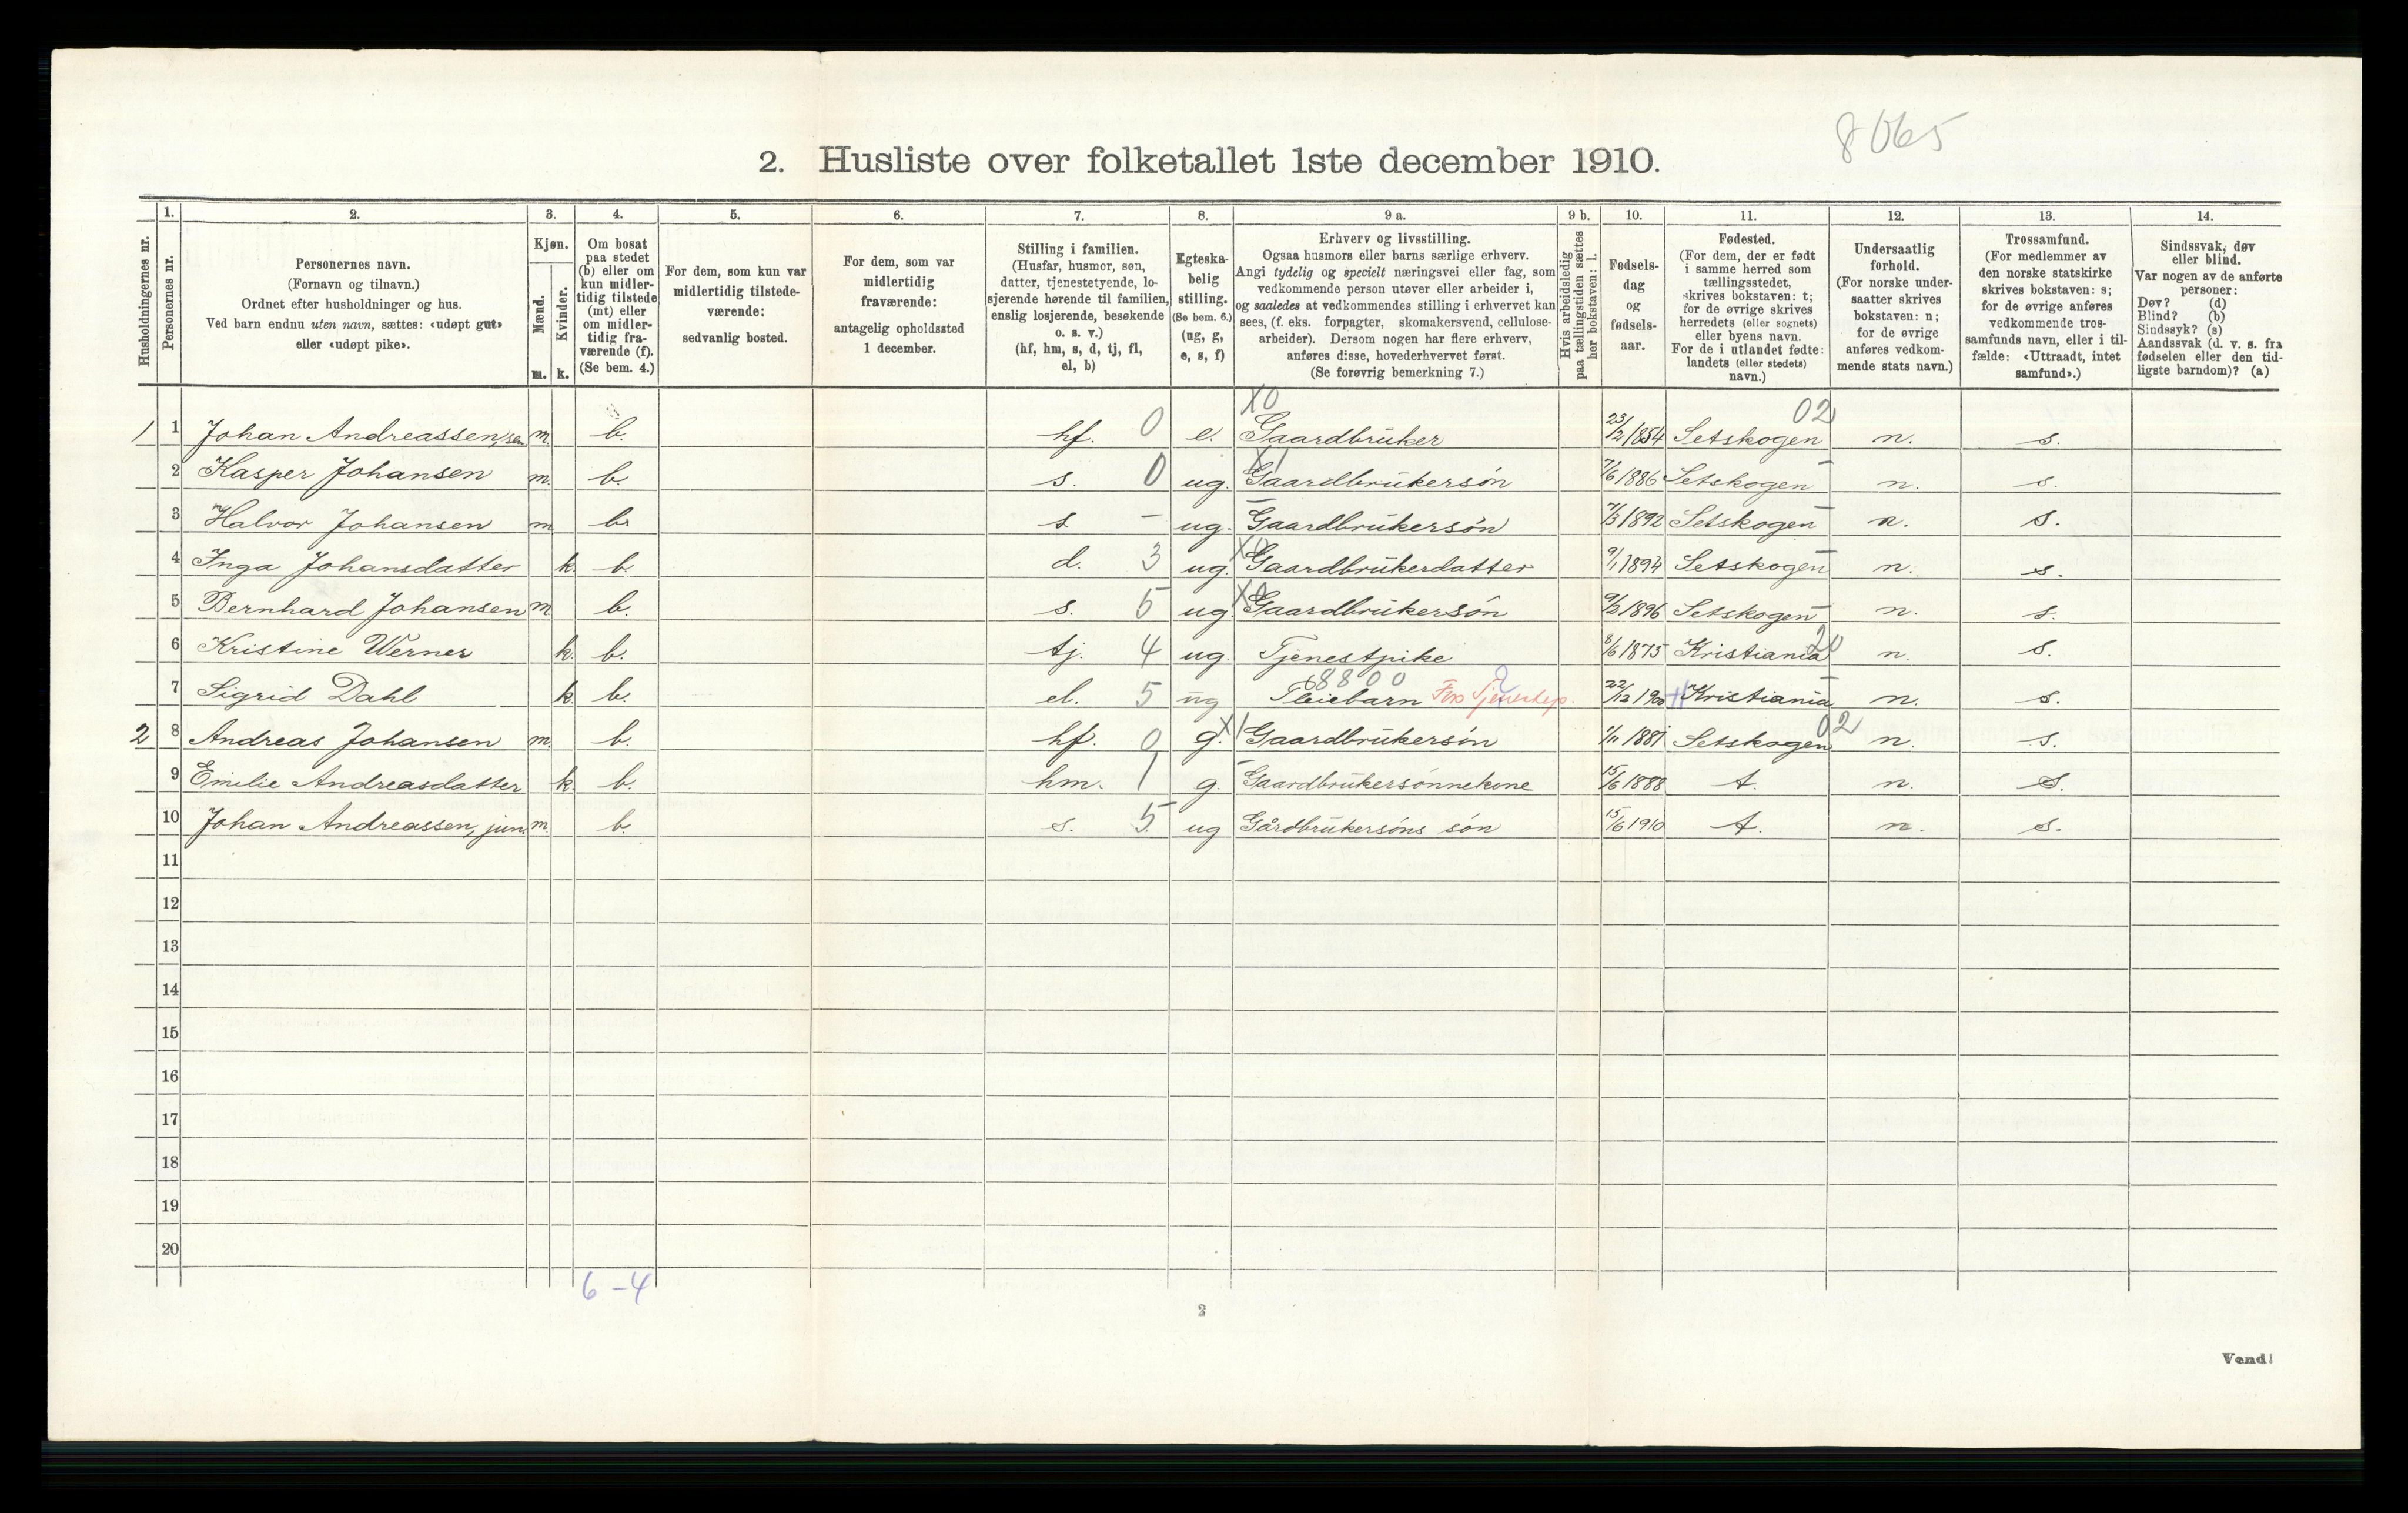 8065
2. Husliste over folketallet 1ste december 1910.
Husholdningernes nr.
1. Personernes nr.
2. Personernes navn.
(Fornavn og tilnavn.)
Ordnet efter husholdninger og hus.
Ved barn endnu uten navn, sættes: «udøpt gut»
eller «udøpt pike».
3. Kjøn.
Mænd. Kvinder.
m. k.
4. Om bosat
paa stedet
(b) eller om
kun midler-
tidig tilstede
(mt) eller
om midler-
tidig fra-
værende (f).
(Se bem. 4.)
5. For dem, som kun var
midlertidig tilstede-
værende:
sedvanlig bosted.
6. For dem, som var
midlertidig
fraværende:
antagelig opholdssted
1 december.
7. Stilling i familien.
(Husfar, husmor, søn,
datter, tjenestetyende, lo-
sjerende hørende til familien,
enslig losjerende, besøkende
o. s. v.)
(hf, hm, s, d, tj, fl,
el, b)
8. Egteska-
belig
stilling.
(Se bem. 6.)
(ug, g,
e, s, f)
9 a. Erhverv og livsstilling.
Ogsaa husmors eller barns særlige erhverv.
Angi tydelig og specielt næringsvei eller fag, som
vedkommende person utøver eller arbeider i,
og saaledes at vedkommendes stilling i erhvervet kan
sees, (f. eks. forpagter, skomakersvend, cellulose-
arbeider). Dersom nogen har flere erhverv,
anføres disse, hovederhvervet først.
(Se forøvrig bemerkning 7.)
9 b. Hvis arbeidsledig
paa tællingstiden sættes
her bokstaven: l.
10. Fødsels-
dag
og
fødsels-
aar.
11. Fødested.
(For dem, der er født
i samme herred som
tællingsstedet,
skrives bokstaven: t;
for de øvrige skrives
herredets (eller sognets)
eller byens navn.
For de i utlandet fødte:
landets (eller stedets)
navn.)
12. Undersaatlig
forhold.
(For norske under-
saatter skrives
bokstaven: n;
for de øvrige
anføres vedkom-
mende stats navn.)
13. Trossamfund.
(For medlemmer av
den norske statskirke
skrives bokstaven: s;
for de øvrige anføres
vedkommende tros-
samfunds navn, eller i til-
fælde: «Uttraadt, intet
samfund».)
14. Sindssvak, døv
eller blind.
Var nogen av de anførte
personer:
Døv? (d)
Blind? (b)
Sindssyk? (s)
Aandssvak (d. v. s. fra
fødselen eller den tid-
ligste barndom)? (a)
X0 02
1 1 Johan Andreassen, sen m. b. hf. 0 e. Gaardbruker 23/2 1854 Setskogen n. s.
2 Kasper Johansen m. b. s. 0 ug. X1 Gaardbrukersøn 7/6 1886 Setskogen n. s.
3 Halvor Johansen m b. s. - ug. Gaardbrukersøn 7/3 1892 Setskogen n. s.
4 Inga Johansdatter k. b. d. 3 ug. X0 Gaardbrukerdatter 9/1 1894 Setskogen n. s.
5 Bernhard Johansen m. b. s. 5 ug. X0 Gaardbrukersøn 1896 Setskogen n. s.
6 Kristine Werner k. b. tj. 4 ug. Tjenestpike 8/6 1875 Kristiania 20 n. s.
8800
7 Sigrid Dahl k. b. el. 5 ug Pleiebarn 22/12 1900 Kristiania n. s.
2 8 Andreas Johansen m. b. hf. 0 g. X1 Gaardbrukersøn 1881 Setskogen 02 n. s.
9 Emilie Andreasdatter k. b. hm. 1 g. Gaardbrukersønnekone 15/6 1888 t. n. s.
10 Johan Andreassen, jun. m. b. s. 5 ug Gårdbrukersøns søn 15/6 1910 t. n. s.
11
12
13
14
15
16
17
18
19
20
6 - 4
2
Vend!